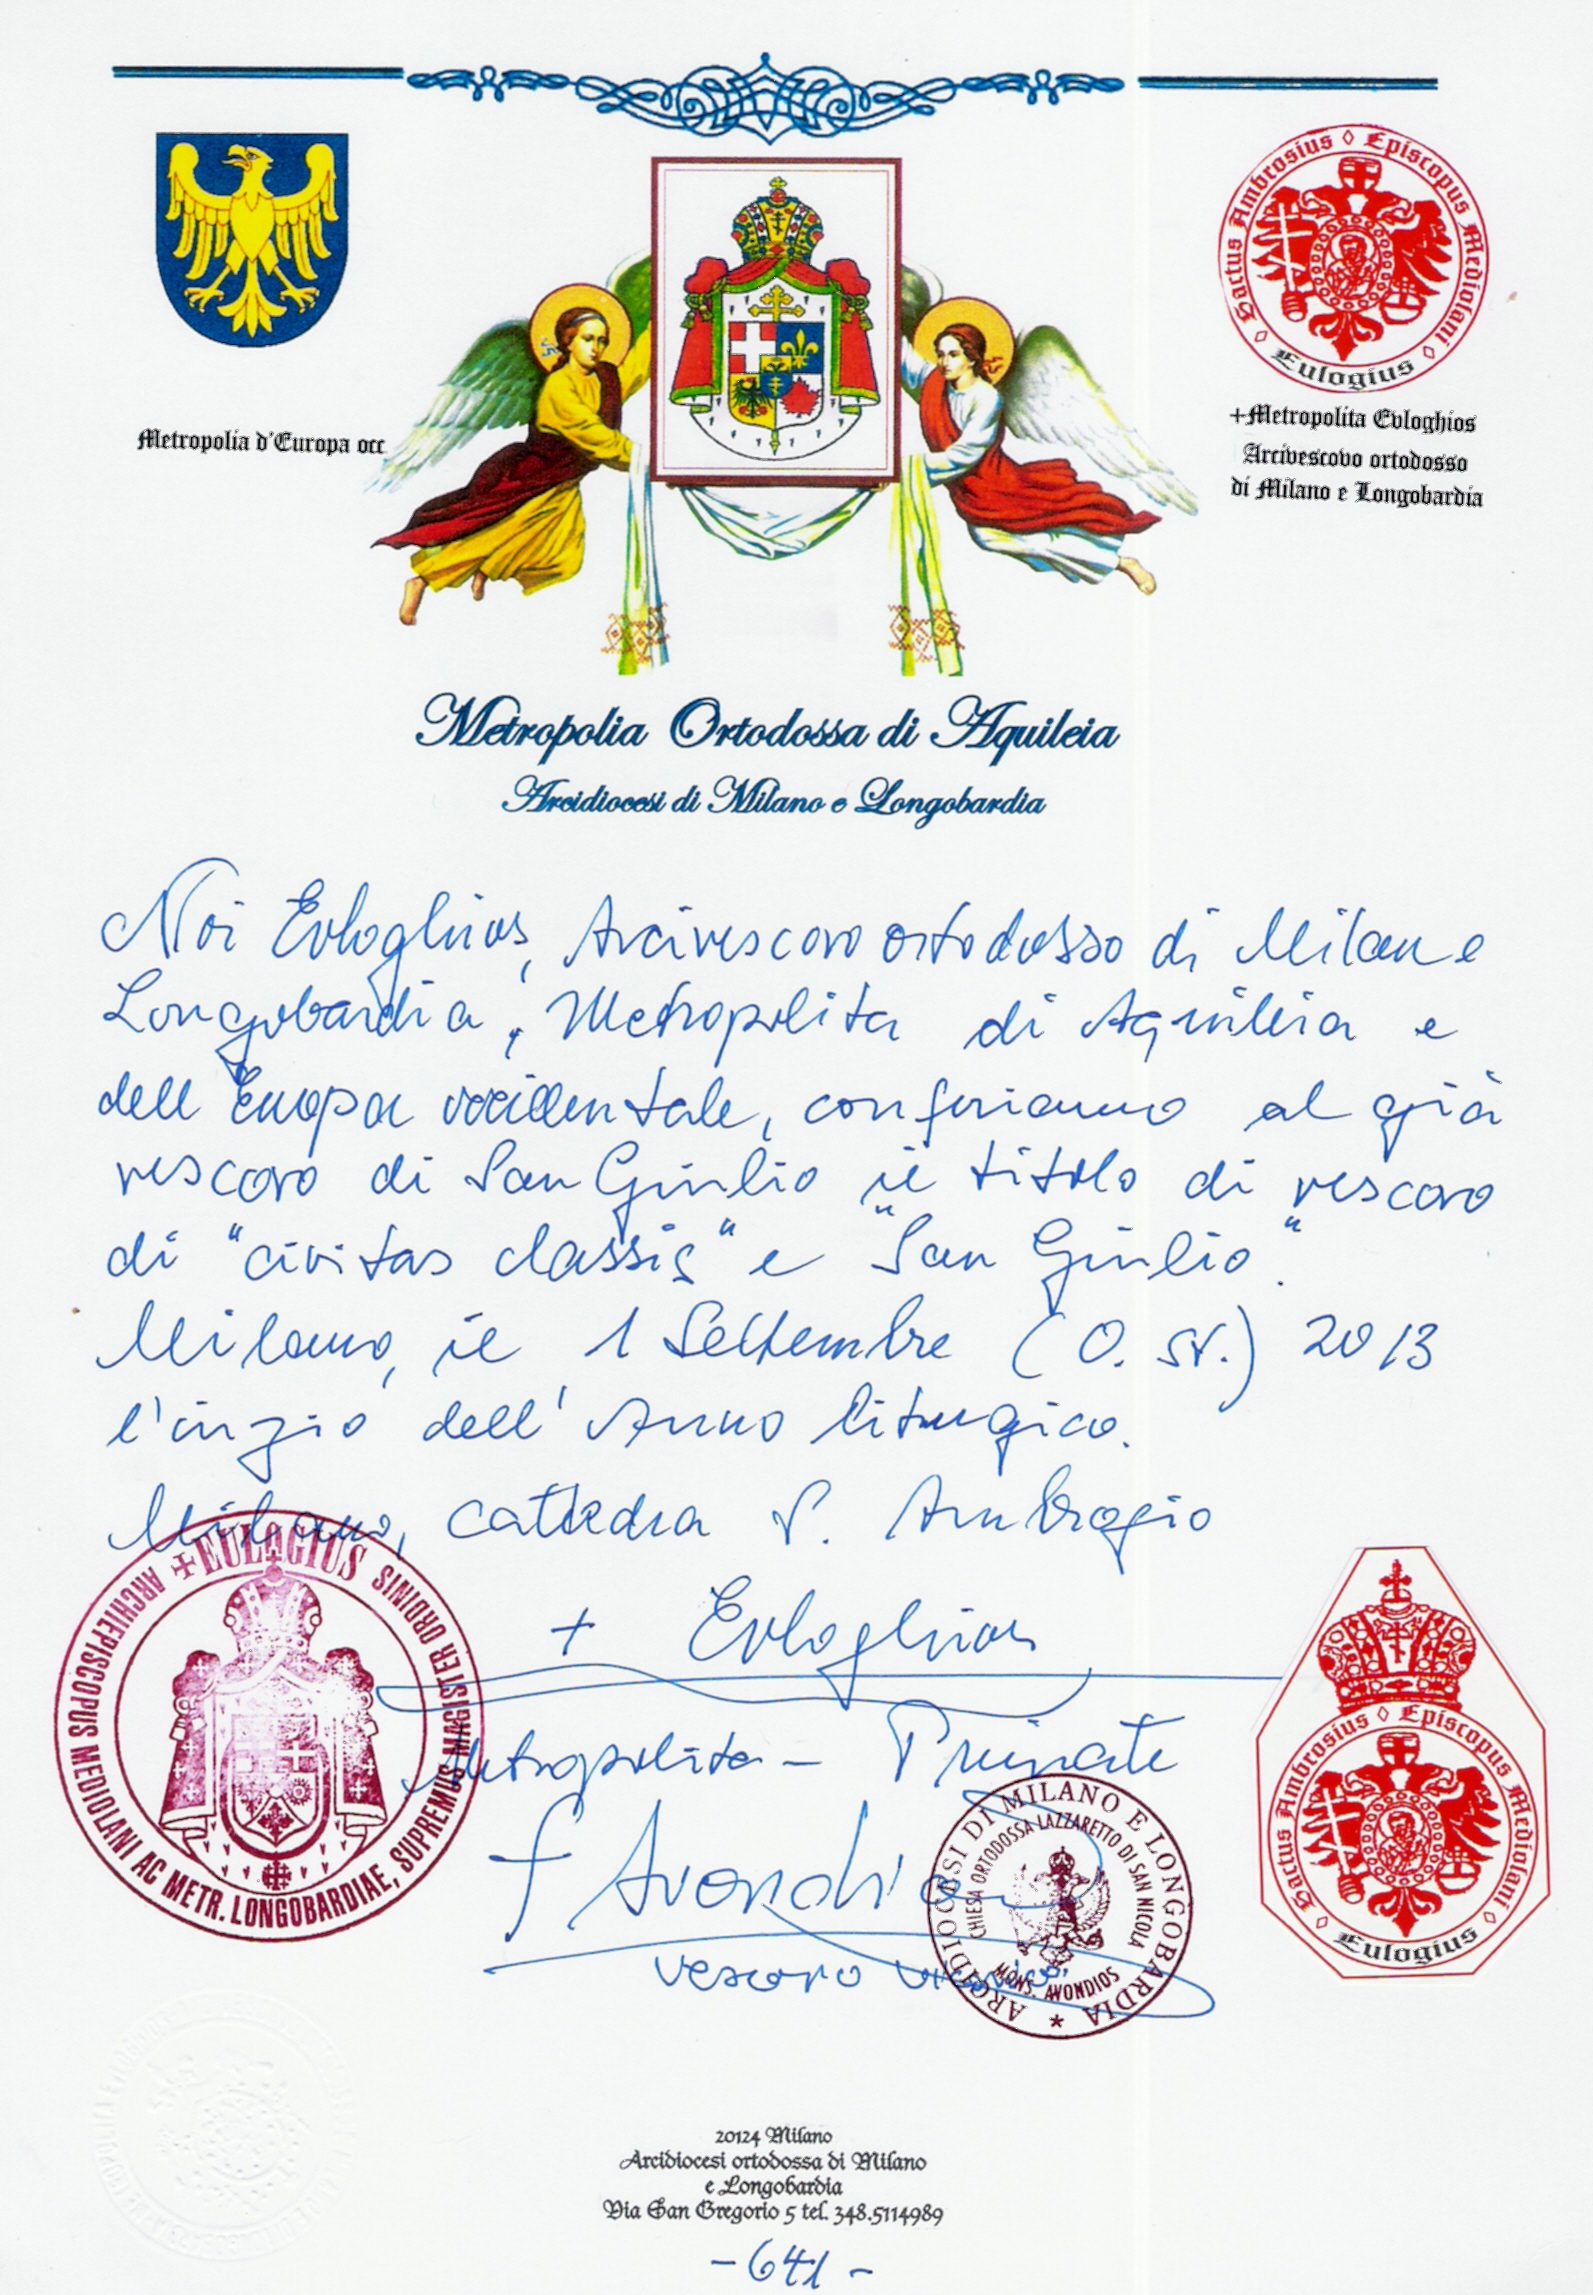 Metropolia d'Europa occ
Sactus Ambrosius ◊ Episcopus Mediolani ◊
Eulogius
+Metropolita Evloghios
Arcivescovo ortodosso
di Milano e Longobardia
Metropolia Ortodossa di Aquileia
Arcidiocesi di Milano e Longobardia
Noi Evloghios, Arcivescovo ortodosso di Milan e
Longobardia, Metropolita di Aquileia e
dell Europa occidentale, conferiamo al già
vescovo di San Giulio il titolo di vescovo
di "civitas classis" e "San Giulio".
Milano, il 1 Settembre (O. st.) 2013
l'inzio dell'Anno liturgico.
Milano, cattedra S. Ambrogio
+ Evloghios
Metropolita - Primate
+EULOGIUS
ARCHIEPISCOPUS MEDIOLANI AC METR. LONGOBARDIAE, SUPREMUS MAGISTER ORDINIS
† Avondios
vescovo
ARCIDIOCESI DI MILANO E LONGOBARDIA
CHIESA ORTODOSSA LAZZARETTO DI SAN NICOLA
MONS. AVONDIOS
Sactus Ambrosius ◊ Episcopus Mediolani ◊
Eulogius
20124 Milano
Arcidiocesi ortodossa di Milano
e Longobardia
Via San Gregorio 5 tel. 348.5114989
-641-